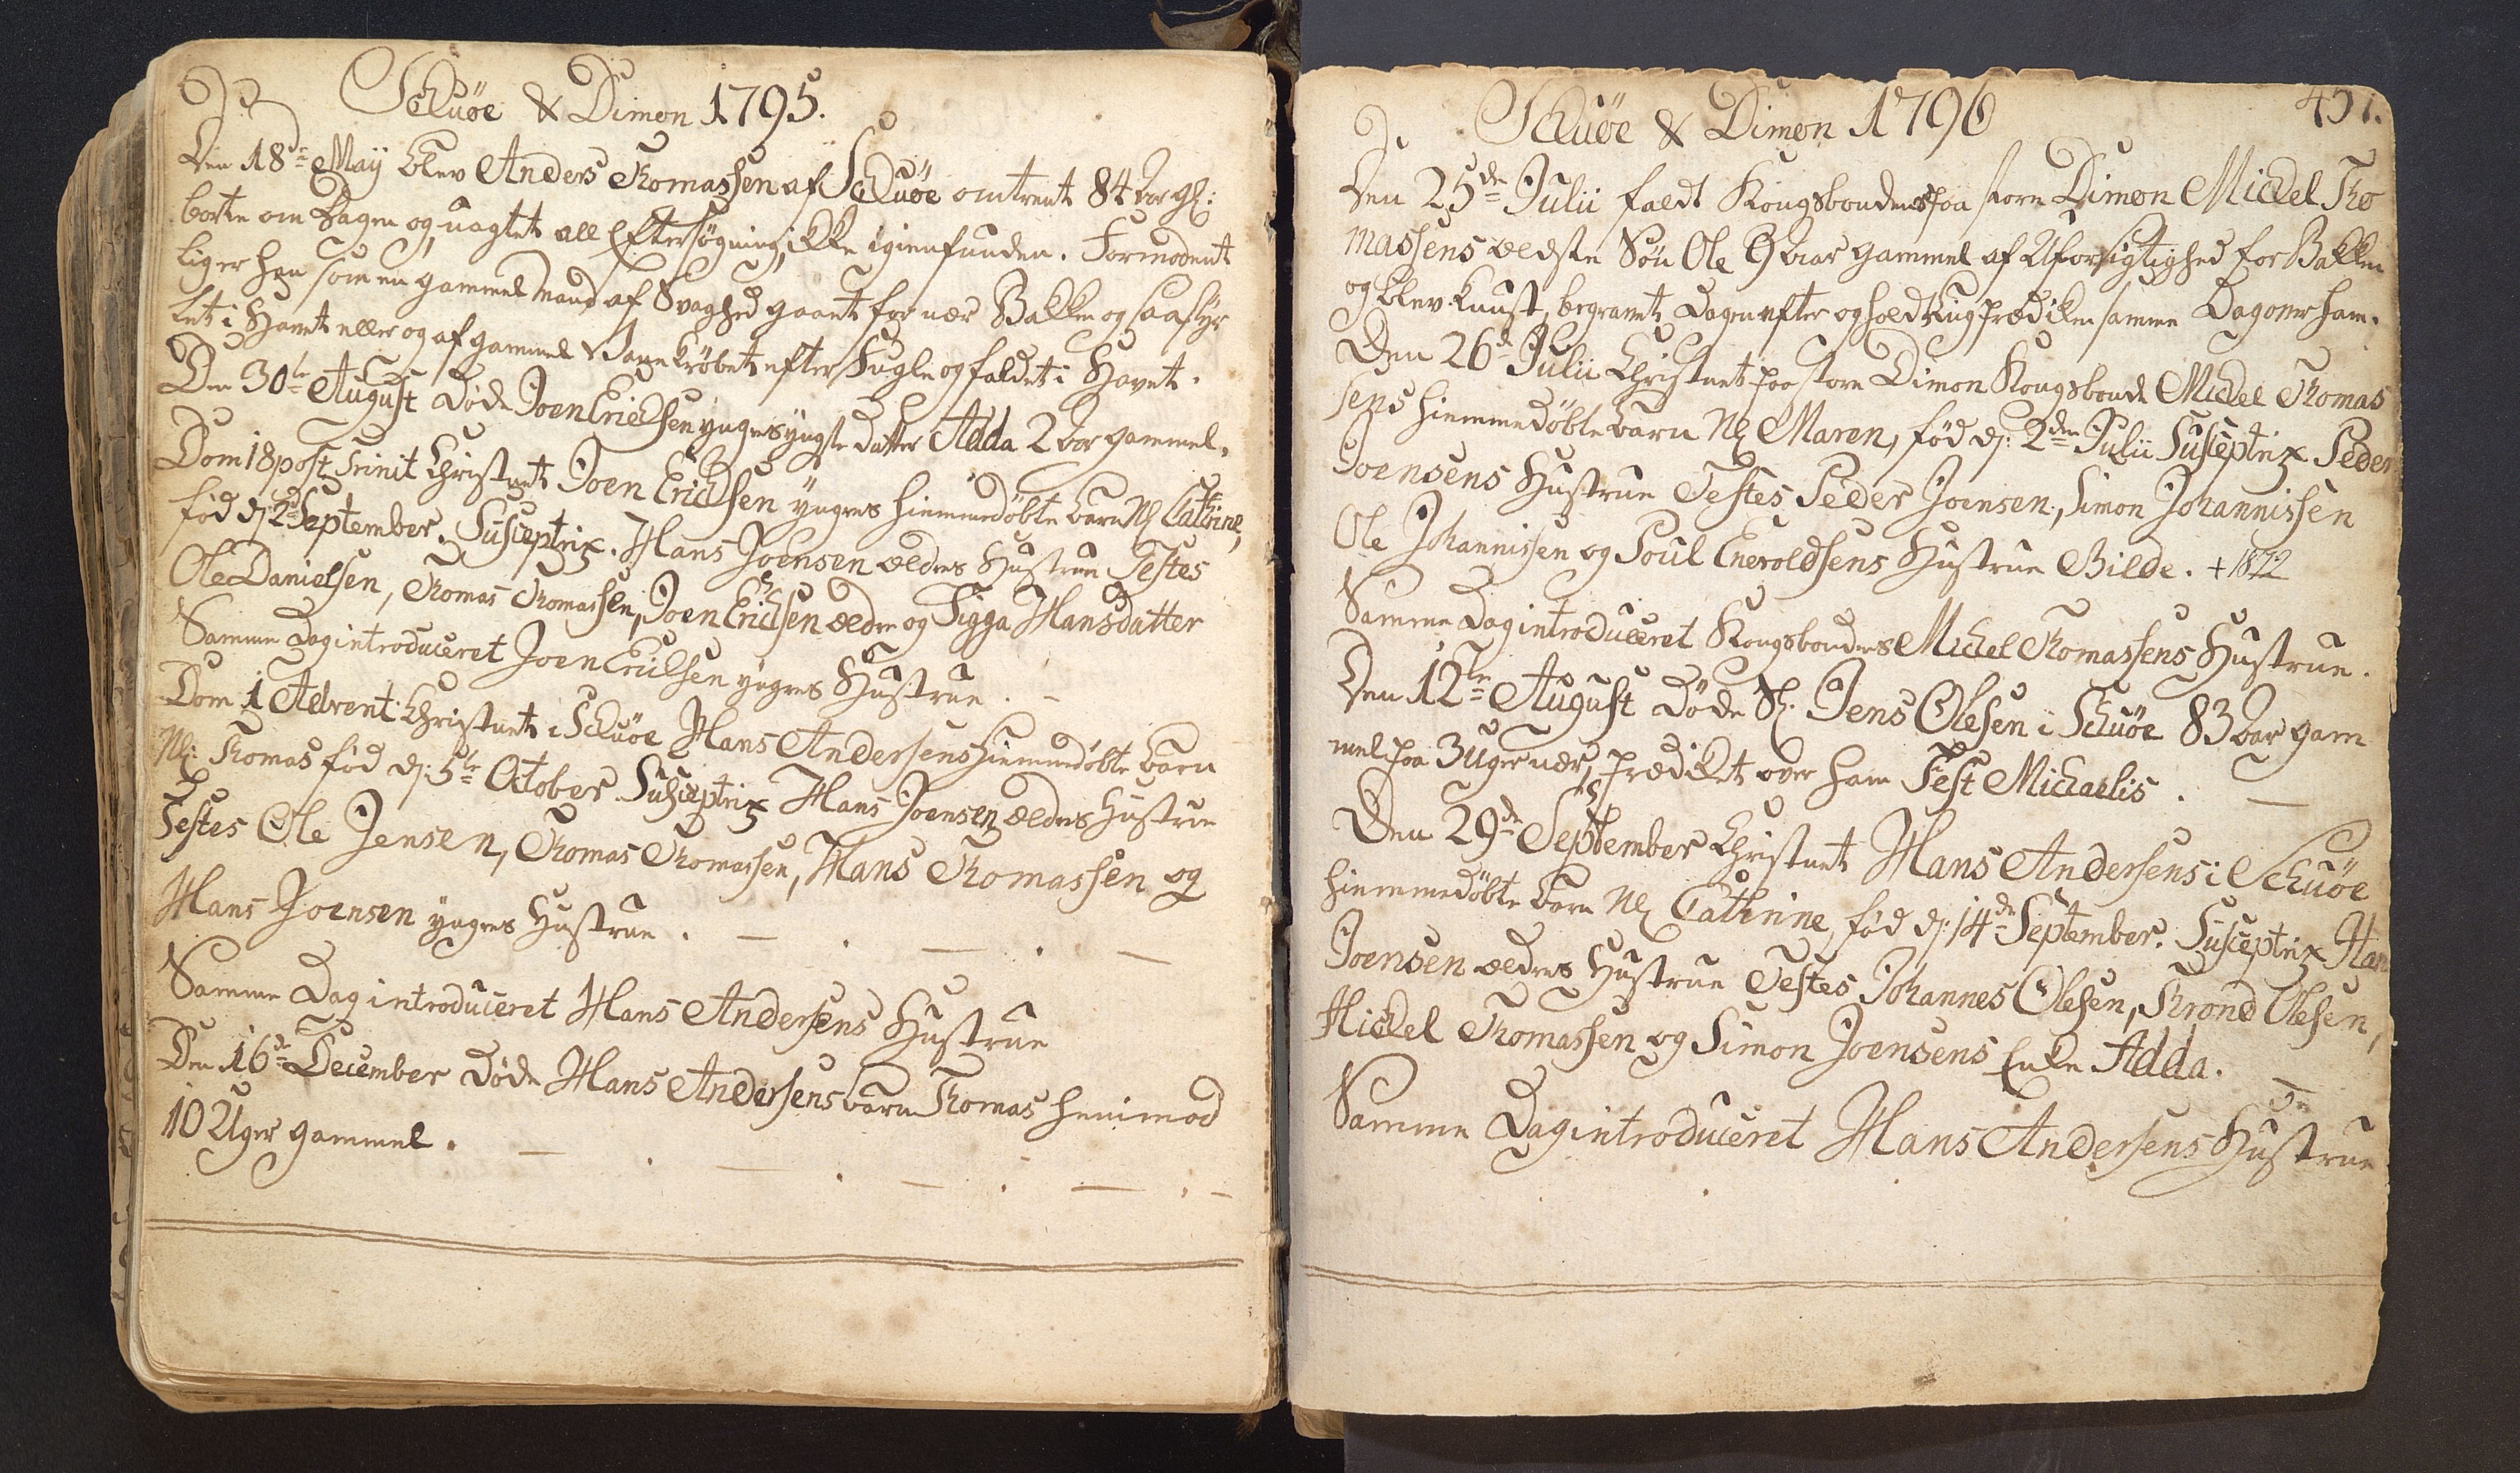 Schuöe & Dimon 1795.
Den 18de Maÿ blev Anders Thomassen af Schuöe omtrent 84 Aar gl:
borte om Dagen og uagtet all Eftersøgning, ikke igienfunden. Formodent
lig er han som en gammel Mand af Svaghed gaaet for nær Bakken og saa styr
tet i Havet eller og af gammel Vane krøbet efter Fugle og faldet i Havet.
Den 30te August Døde Joen Erichsen yngres yngste datter Adda 2 Aar gammel.
Dom 18 post Trinit Christnet Joen Erichsen yngres hiemmedøbte barn Nl Cathrine,
fød d: 2de September. Susceptrix. Hans Joensen ældres Hustrue Testes
Ole Danielsen, Thomas Thomassen, Joen Erichsen ældre og Sigga Hansdatter
Samme Dag introduceret Joen Erichsen yngres Hustrue.
Dom 1 Advent Christnet i Schuöe Hans Andersens hiemmedøbte barn
Nl: Thomas fød d: 5te October. Susceptrix Hans Joensen ældres Hustrue
Testes Ole Jensen, Thomas Thomassen, Hans Thomassen og
Hans Joensen yngres Hustrue.
Samme Dag introduceret Hans Andersens Hustrue
Den 16de December Døde Hans Andersens barn Thomas henimod
10 Uger gammel.
Schuöe & Dimon 1796
457.
Den 25de Julii faldt Kongsbondens paa store Dimon Mickel Tho
massens ældste Søn Ole 9 Aar gammel af Uforsigtighed for Bakken
og blev knust, begravet Dagen efter og holdt Liigprædiken samme Dag over ham.
Den 26de Julii Christnet paa store Dimon Kongsbonde Mickel Thomas
sens hiemmedøbte barn Nl Maren, fød d: 2den Julii Susceptrix Peder
Joensens Hustrue Testes Peder Joensen, Simon Johannissen
Ole Johannissen og Poul Eneroldsens Hustrue Bilde. + 1872
Samme Dag introduceret Kongsbondens Mickel Thomassens Hustrue.
Den 12te August Døde Sl. Jens Olesen i Schuöe 83 Aar gam
mel paa 3 Uger nær, prædiket over ham Fest Michaelis.
Den 29de September Christnet Hans Andersens i Schuöe
hiemmedøbte barn Nl Cathrine, fød d: 14de September. Susceptrix Han
Joensen ældres Hustrue Testes Johannes Olesen, Thrond Olesen,
Mickel Thomassen og Simon Joensens Enke Adda.
Samme Dag introduceret Hans Andersens Hustrue